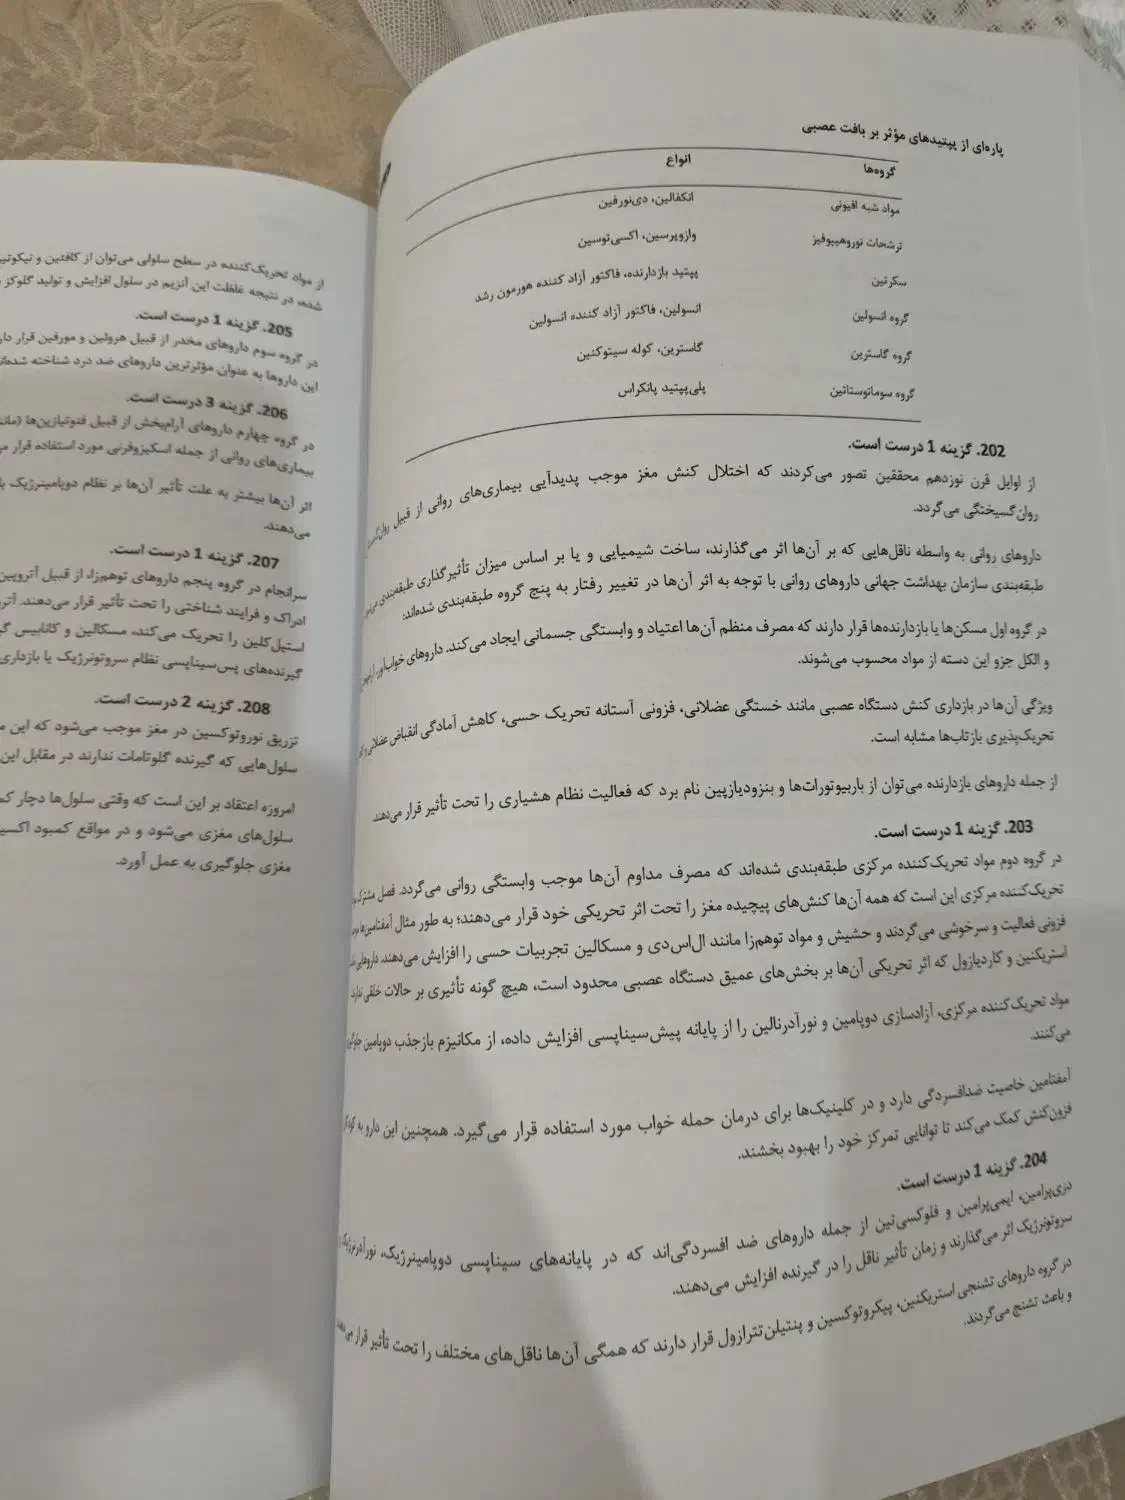 پاره‌ای از پپتیدهای مؤثر بر بافت عصبی
گروه‌ها انواع
مواد شبه افیونی انکفالین، دی‌نورفین
ترشحات نوروهیپوفیز وازوپرسین، اکسی‌توسین
سکرتین پپتید بازدارنده، فاکتور آزاد کننده هورمون رشد
گروه انسولین انسولین، فاکتور آزاد کننده انسولین
گروه گاسترین گاسترین، کوله سیتوکنین
گروه سوماتوستاتین پلی‌پپتید پانکراس
202. گزینه 1 درست است.
از اوایل قرن نوزدهم محققین تصور می‌کردند که اختلال کنش مغز موجب پدیدآیی بیماری‌های روانی از قبیل
روان‌گسیختگی می‌گردد.
داروهای روانی به واسطه ناقل‌هایی که بر آن‌ها اثر می‌گذارند، ساخت شیمیایی و یا بر اساس میزان تأثیرگذاری طبقه‌بندی
طبقه‌بندی سازمان بهداشت جهانی داروهای روانی با توجه به اثر آن‌ها در تغییر رفتار به پنج گروه طبقه‌بندی شده‌اند:
در گروه اول مسکن‌ها یا بازدارنده‌ها قرار دارند که مصرف منظم آن‌ها اعتیاد و وابستگی جسمانی ایجاد می‌کند. داروهای خواب‌آور،
و الکل جزو این دسته از مواد محسوب می‌شوند.
ویژگی آن‌ها در بازداری کنش دستگاه عصبی مانند خستگی عضلانی، فزونی آستانه تحریک حسی، کاهش آمادگی انقباض عضلانی و
تحریک‌پذیری بازتاب‌ها مشابه است.
از جمله داروهای بازدارنده می‌توان از باربیوتورات‌ها و بنزودیازپین نام برد که فعالیت نظام هشیاری را تحت تأثیر قرار می‌دهند.
203. گزینه 1 درست است.
در گروه دوم مواد تحریک‌کننده مرکزی طبقه‌بندی شده‌اند که مصرف مداوم آن‌ها موجب وابستگی روانی می‌گردد. فصل مشترک
تحریک‌کننده مرکزی این است که همه آن‌ها کنش‌های پیچیده مغز را تحت اثر تحریکی خود قرار می‌دهند؛ به طور مثال آمفتامین‌ها
فزونی فعالیت و سرخوشی می‌گردند و حشیش و مواد توهم‌زا مانند ال‌اس‌دی و مسکالین تجربیات حسی را افزایش می‌دهند. داروهایی
استریکنین و کاردیازول که اثر تحریکی آن‌ها بر بخش‌های عمیق دستگاه عصبی محدود است، هیچ گونه تأثیری بر حالات خلقی ندارند.
مواد تحریک‌کننده مرکزی، آزادسازی دوپامین و نورآدرنالین را از پایانه پیش‌سیناپسی افزایش داده، از مکانیزم بازجذب دوپامین جلوگیری
می‌کنند.
آمفتامین خاصیت ضدافسردگی دارد و در کلینیک‌ها برای درمان حمله خواب مورد استفاده قرار می‌گیرد. همچنین این دارو به
فزون‌کنش کمک می‌کند تا توانایی تمرکز خود را بهبود بخشند.
204. گزینه 1 درست است.
دزی‌پرامین، ایمی‌پرامین و فلوکسی‌تین از جمله داروهای ضد افسردگی‌اند که در پایانه‌های سیناپسی دوپامینرژیک، نورآدرنرژیک و
سروتونرژیک اثر می‌گذارند و زمان تأثیر ناقل را در گیرنده افزایش می‌دهند.
در گروه داروهای تشنجی استریکنین، پیکروتوکسین و پنتیلن‌تترازول قرار دارند که همگی آن‌ها ناقل‌های مختلف را تحت تأثیر قرار می‌دهند
و باعث تشنج می‌گردند.
از مواد تحریک‌کننده در سطح سلولی می‌توان از کافئین و نیکوتین
شده، در نتیجه غلظت این آنزیم در سلول افزایش و تولید گلوکز
205. گزینه 1 درست است.
در گروه سوم داروهای مخدر از قبیل هروئین و مورفین قرار
این داروها به عنوان مؤثرترین داروهای ضد درد شناخته شده‌اند
206. گزینه 3 درست است.
در گروه چهارم داروهای آرام‌بخش از قبیل فنوتیازین‌ها
بیماری‌های روانی از جمله اسکیزوفرنی مورد استفاده قرار
اثر آن‌ها بیشتر به علت تأثیر آن‌ها بر نظام دوپامینرژیک
می‌دهند.
207. گزینه 1 درست است.
سرانجام در گروه پنجم داروهای توهم‌زا، از قبیل آتروپین
ادراک و فرایند شناختی را تحت تأثیر قرار می‌دهند.
استیل‌کلین را تحریک می‌کند، مسکالین و کانابیس
گیرنده‌های پس‌سیناپسی نظام سروتونرژیک یا بازداری
208. گزینه 2 درست است.
تزریق نوروتوکسین در مغز موجب می‌شود که این
سلول‌هایی که گیرنده گلوتامات ندارند در مقابل این
امروزه اعتقاد بر این است که وقتی سلول‌ها دچار
سلول‌های مغزی می‌شود و در مواقع کمبود
مغزی جلوگیری به عمل آورد.